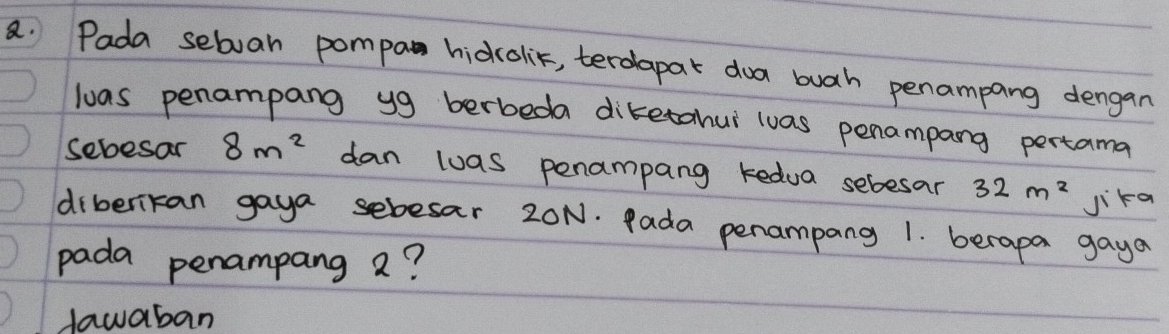 2. Pada sebuah pompa hidrolik, terdapat dua buah penampang dengan
luas penampang yg berbeda diketahui luas penampang pertama
sebesar 8 m² dan luas penampang kedua sebesar 32 m² jika
diberikan gaya sebesar 20N. Pada penampang 1. berapa gaya
pada penampang 2?
Jawaban